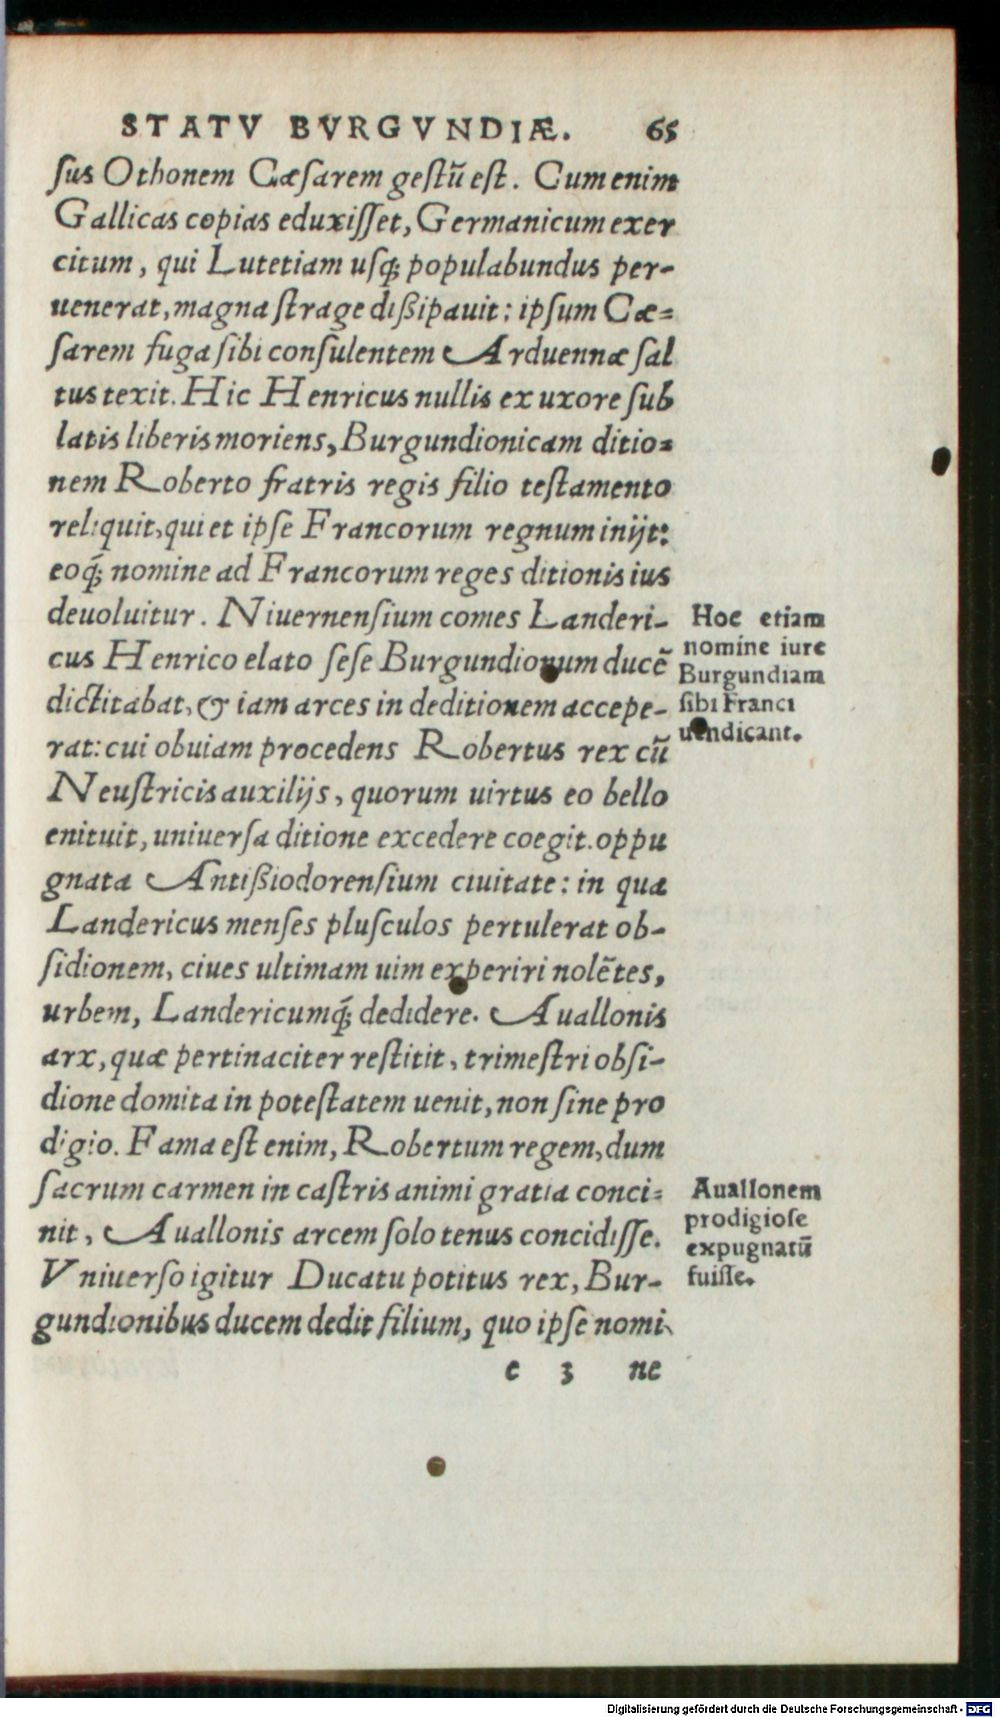 STATV BVRGVNDIÆ. 65
ſus Othonem Cæſarem geſtũ eſt. Cum enim
Gallicas copias eduxiſſet, Germanicum exer
citum, qui Lutetiam uſq́; populabundus per-
uenerat, magna ſtrage dißipauit: ipſum Cæ=
ſarem fuga ſibi conſulentem Arduennæ ſal
tus texit. Hic Henricus nullis ex uxore ſub
latis liberis moriens, Burgundionicam ditio=
nem Roberto fratris regis filio teſtamento
reliquit, qui et ipſe Francorum regnum inijt:
eoq́; nomine ad Francorum reges ditionis ius
deuoluitur. Niuernenſium comes Landeri-
cus Henrico elato ſeſe Burgundionum ducẽ
dictitabat, & iam arces in deditionem accepe-
rat: cui obuiam procedens Robertus rex cũ
Neuſtricis auxilijs, quorum uirtus eo bello
enituit, uniuerſa ditione excedere coegit. oppu
gnata Antißiodorenſium ciuitate: in qua
Landericus menſes pluſculos pertulerat ob-
ſidionem, ciues ultimam uim experiri nolẽtes,
urbem, Landericumq́; dedidere. Auallonis
arx, quæ pertinaciter reſtitit, trimeſtri obſi-
dione domita in poteſtatem uenit, non ſine pro
digio. Fama eſt enim, Robertum regem, dum
ſacrum carmen in caſtris animi gratia conci=
nit, Auallonis arcem ſolo tenus concidiſſe.
Vniuerſo igitur Ducatu potitus rex, Bur-
gundionibus ducem dedit filium, quo ipſe nomi
e 3 ne
Hoc etiam
nomine iure
Burgundiam
ſibi Franci
uendicant.
Auallonem
prodigioſe
expugnatũ
fuiſſe.
Digitalisierung gefördert durch die Deutsche Forschungsgemeinschaft - DFG